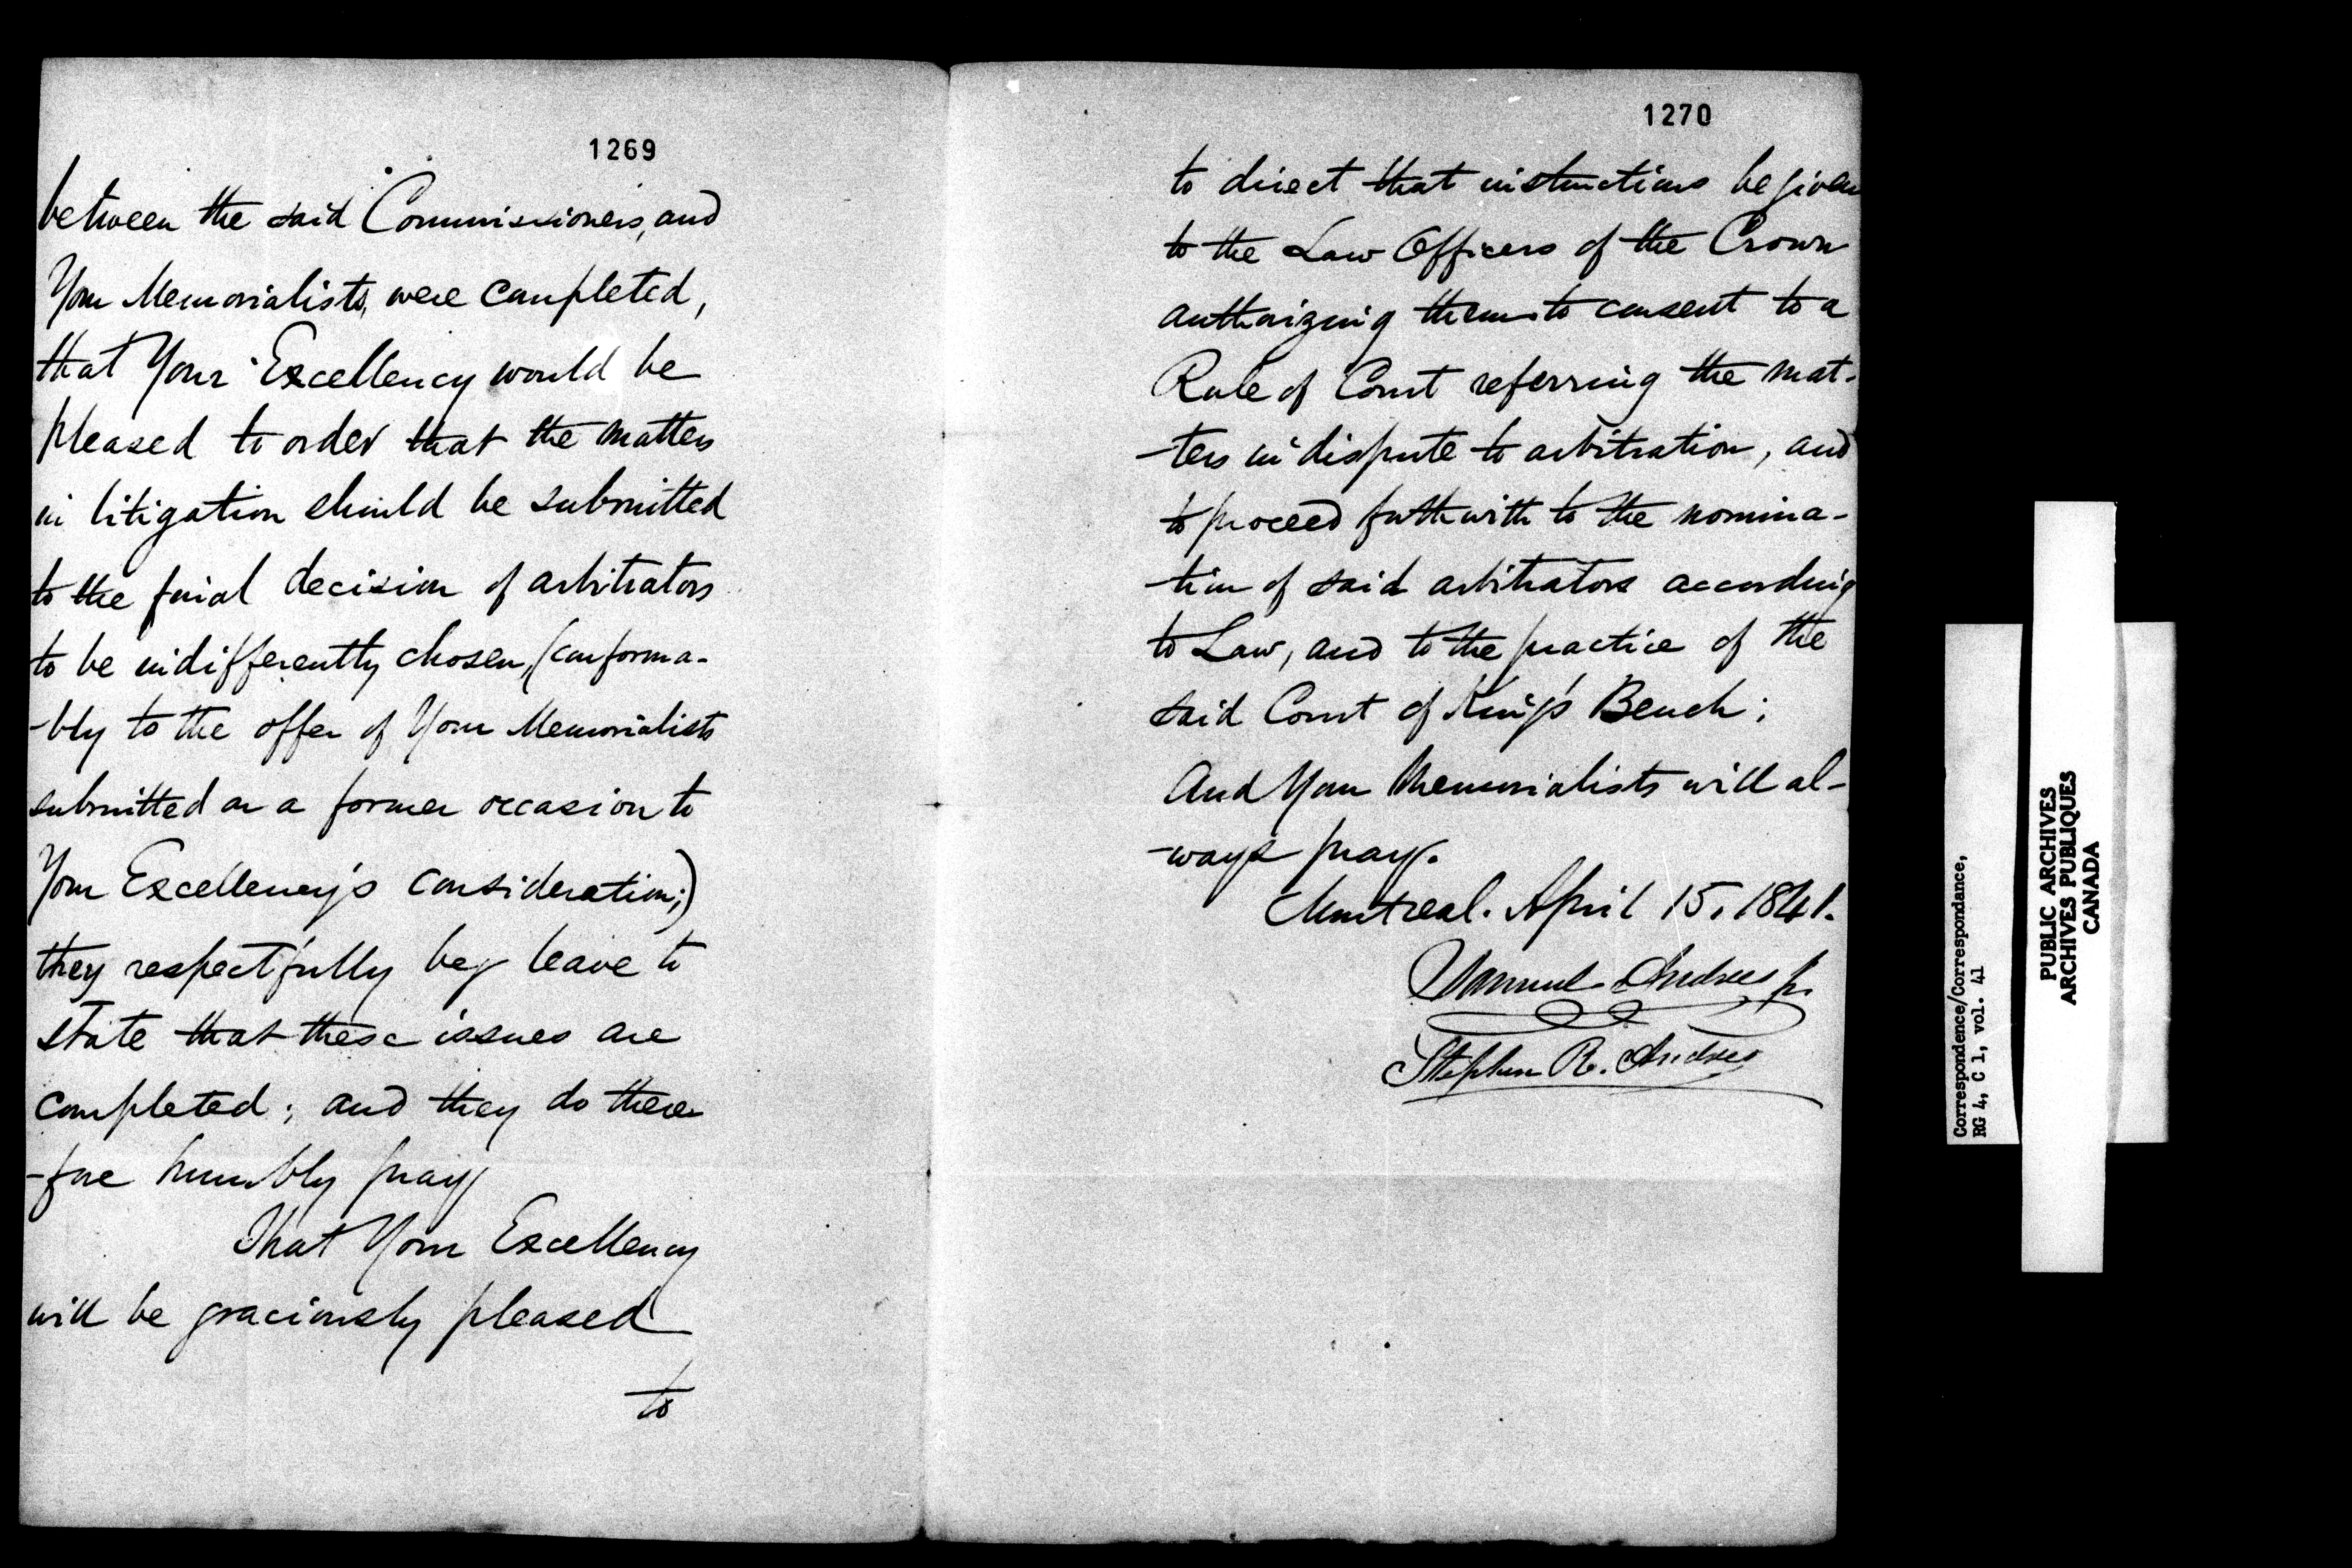 1269
between the said Commissioners, and
Your Memorialists, were completed,
that Your Excellency would be
pleased to order that the matters
in litigation should be submitted
to the final decision of arbitrators
to be indifferently chosen, (conforma-
-bly to the offer of Your Memorialists
submitted on a former occasion to
Your Excellency's consideration;)
they respectfully beg leave to
state that these issues are
completed; and they do there
-fore humbly pray
That Your Excellency
will be graciously pleased
to
1270
to direct that instructions be given
to the Law Officers of the Crown
authorizing them to consent to a
Rule of Court referring the mat-
-ters in dispute to arbitration, and
to proceed forthwith to the nomina-
-tion of said arbitrators according
to Law, and to the practice of the
said Court of King's Bench;
And Your Memorialists will al-
-ways pray.
Montreal. April 15. 1841.
Samuel Andres Jr.
Stephen R. Andres
Correspondence/Correspondance,
RG 4, C 1, vol. 41
PUBLIC ARCHIVES
ARCHIVES PUBLIQUES
CANADA